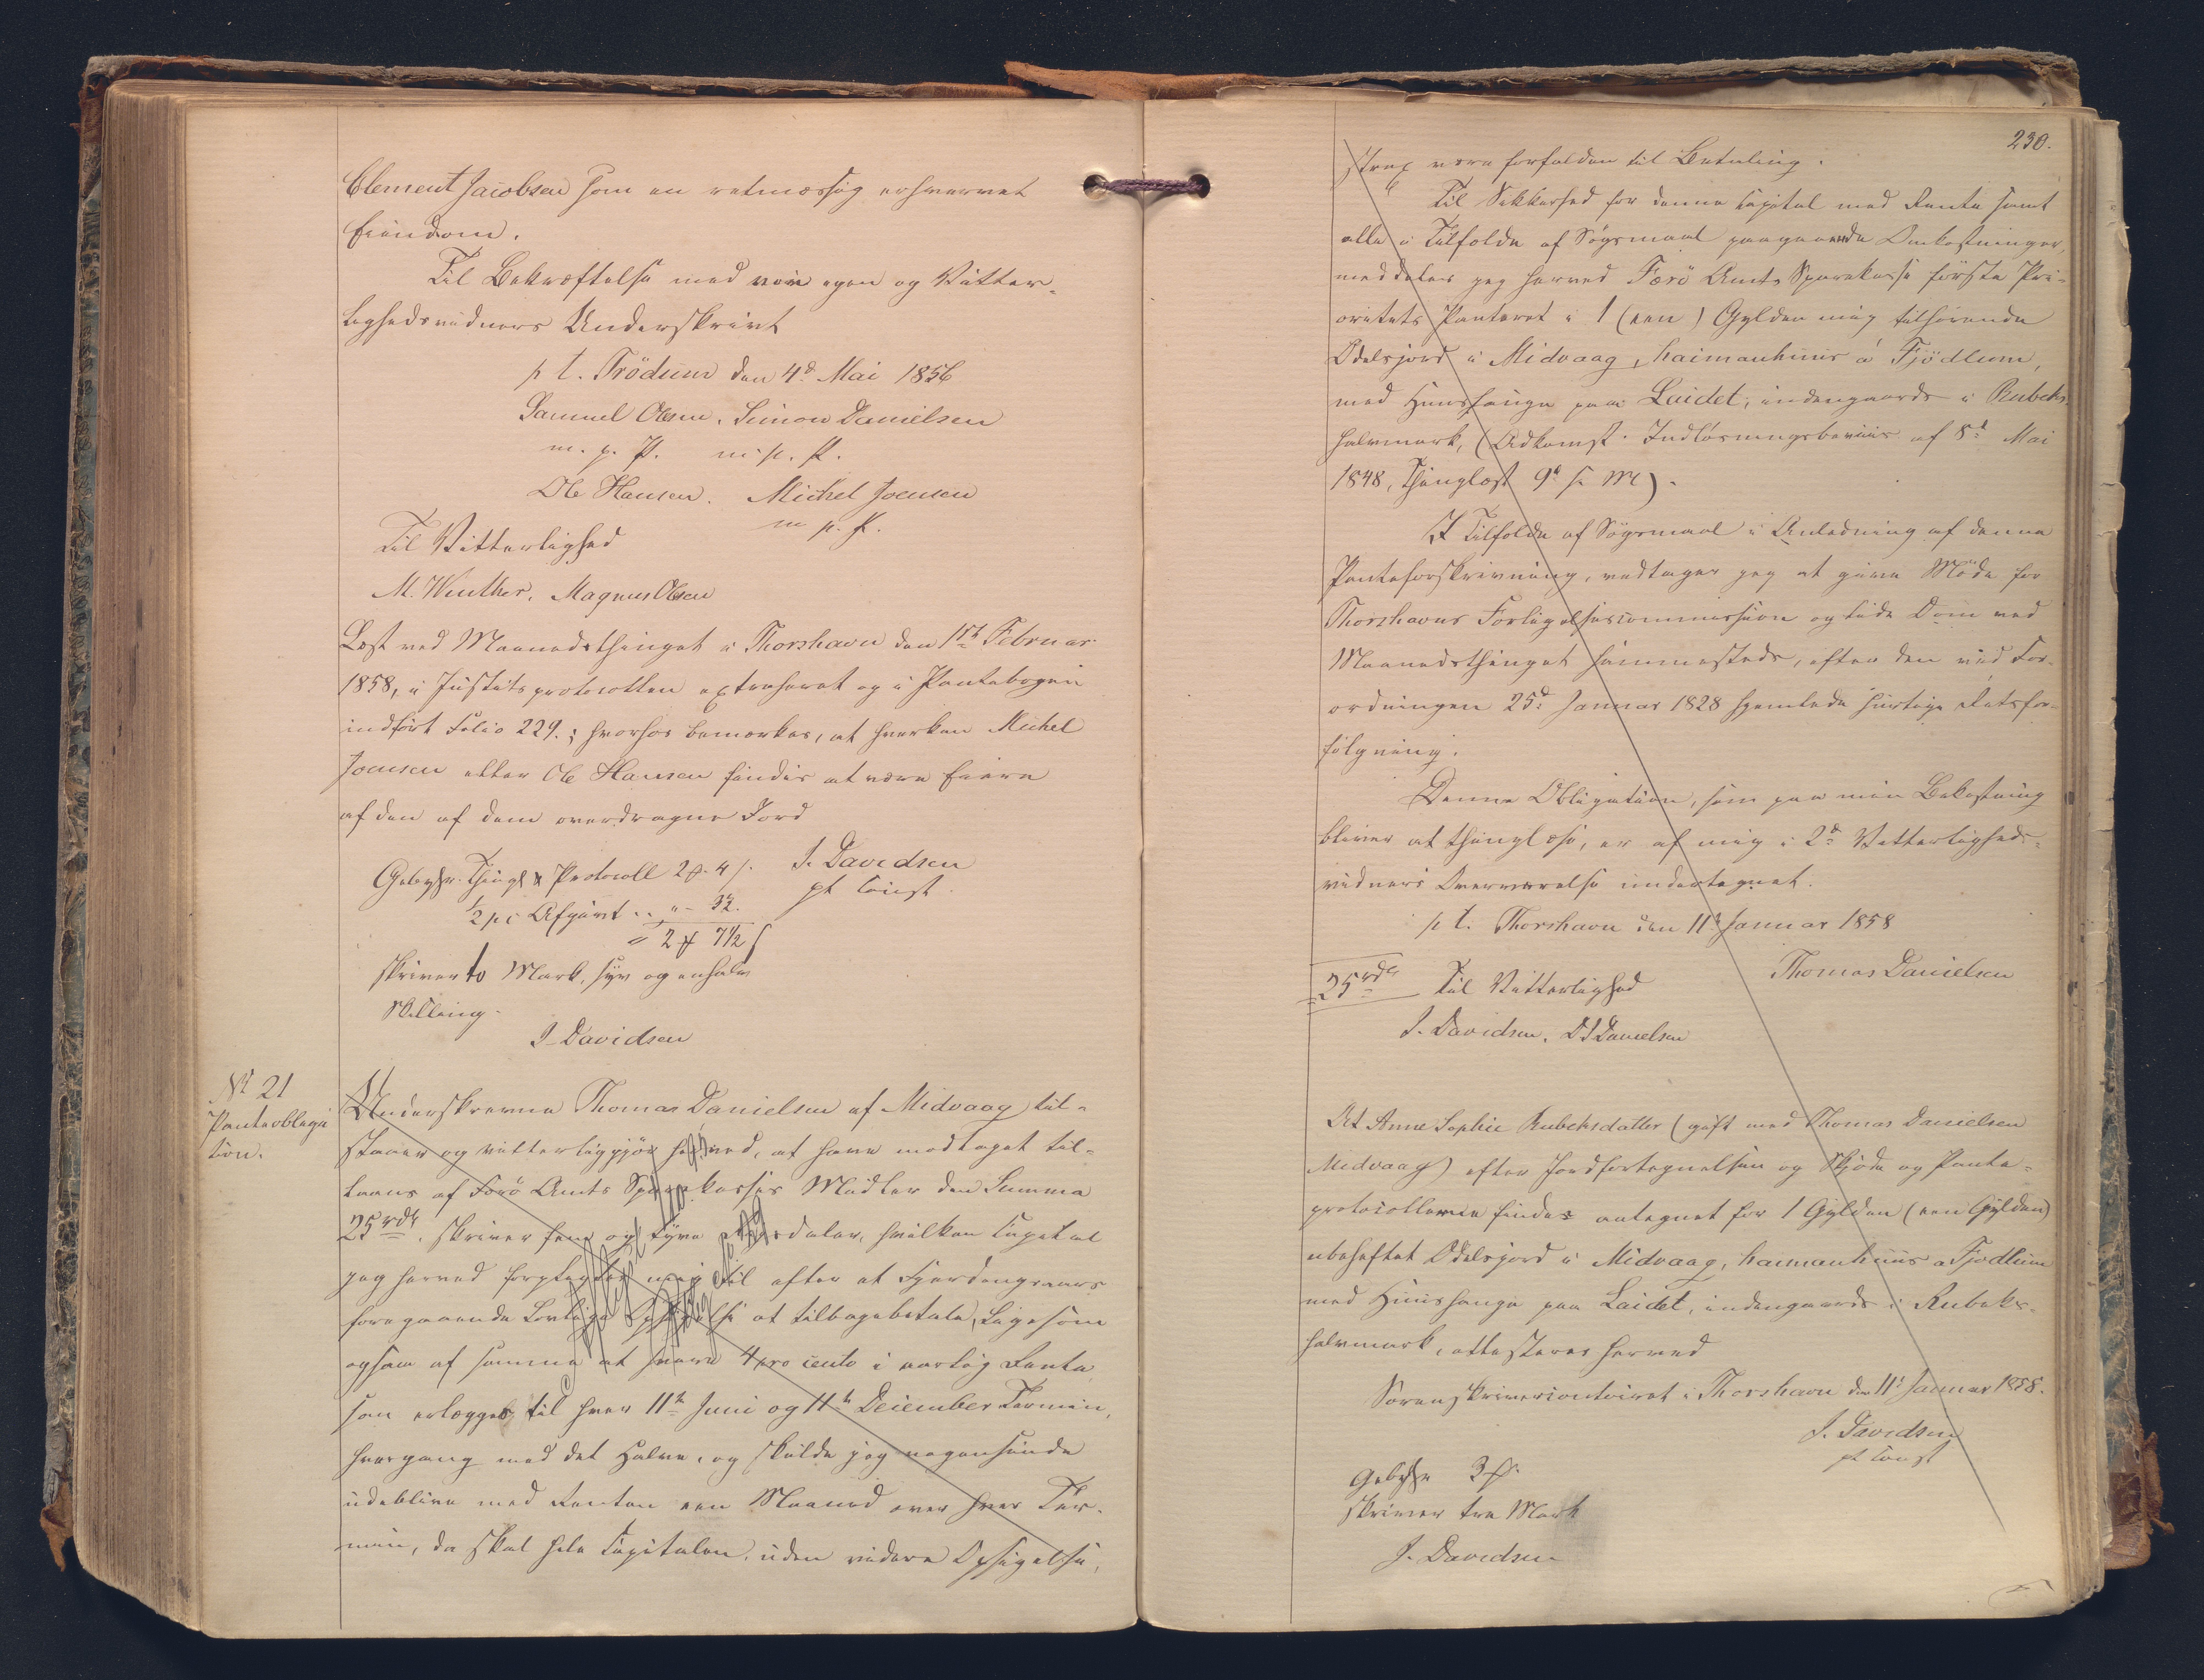 Clement Jacobsen som en retmæssig erhvervet
Eiendom.
Til Bekræftelse med vor egen og Vitter-
lighedsvidners Underskrivt
p t. Trödum den 4d Mai 1856
Samuel Olsen. Simon Danielsen
m. p. P. m. p. P.
Ole Hansen. Michel Joensen
m p. P.
Til Vitterlighed
M. Winther. Magnus Olsen
Læst ved Maanedsthinget i Thorshavn den 1ste Februar
1858, i Justitsprotocollen extraheret og i Pantebogen
indført Folio 229.; hvorhos bemærkes, at hverken Michel
Joensen eller Ole Hansen findes at være Eiere
af den af dem overdragne Jord
J. Davidsen
pt const.
Gebyhr. Thingl & Protocoll 2 ₰. 4 s.
½ pC Afgivt .. " - 3½.
= 2 ₰ 7½ s
skriver to Mark, syv og en halv
Skilling.
J. Davidsen
No 21
Panteobliga
tion.
Underskrevne Thomas Danielsen af Midvaag til-
staaer og vitterliggjør herved, at have modtaget til-
laans af Færö Amts Sparekasses Midler den Summa
25 rdlr, skriver fem og tyve Rigsdaler, hvilken Capital
jeg herved forpligter mig til efter et Fjerdingaars
foregaaende lovlige Opsigelse at tilbagebetale, ligesom
ogsaa af samme at svare 4 pro cento i aarlig Rente
som erlægges til hver 11te Juni og 11te December Termin,
hvergang med det Halve, og skulde jeg nogensinde
udeblive med Renten een Maaned over hver Ter-
min, da skal hele Capitalen, uden videre Opsigelse,
230.
strax være forfalden til Betaling.
Til Sikkerhed for denne Capital med Rente samt
alle i Tilfælde af Søgsmaal paagaaende Omkostninger,
meddeler jeg herved Færö Amts Sparekasse første Pri-
oritets Panteret i 1 (een) Gylden mig tilhørende
Odelsjord i Midvaag, haimanhuus á Fjödlum,
med Huushauge paa Laidet, indengaards i Rubeks-
halvmark, (Adkomst: Indløsningsbeviis af 8d Mai
1848, Thinglæst 9d s. M).
I Tilfælde af Søgsmaal i Anledning af denne
Panteforskrivning, vedtager jeg at give Møde for
Thorshavns Forligelsescommission og lide Dom ved
Maanedsthinget sammesteds, efter den ved For-
ordningen 25d Januar 1828 hjemlede hurtige Retsfor-
følgning.
Denne Obligation, som paa min Bekostning
bliver at thinglæse, er af mig i 2de Vitterligheds-
vidners Overværelse undertegnet.
p t. Thorshavn den 11te Januar 1858
Thomas Danielsen
25 rdlr
Til Vitterlighed
J. Davidsen. D J Danielsen
At Anne Sophie Rubeksdatter (gift med Thomas Danielsen
Midvaag) efter Jordfortegnelsen og Skjøde og Pante-
protocollerne findes antegnet for 1 Gylden (een Gylden)
ubehæftet Odelsjord i Midvaag, haimanhuus a Fjødlum
med Huushauge paa Laidet, indengaards i Rubeks-
halvmark, attesteres herved
Sorenskrivercontoiret i Thorshavn den 11te Januar 1858.
J. Davidsen
pt const
Gebyhr 3 ₰.
skriver tre Mark
J. Davidsen